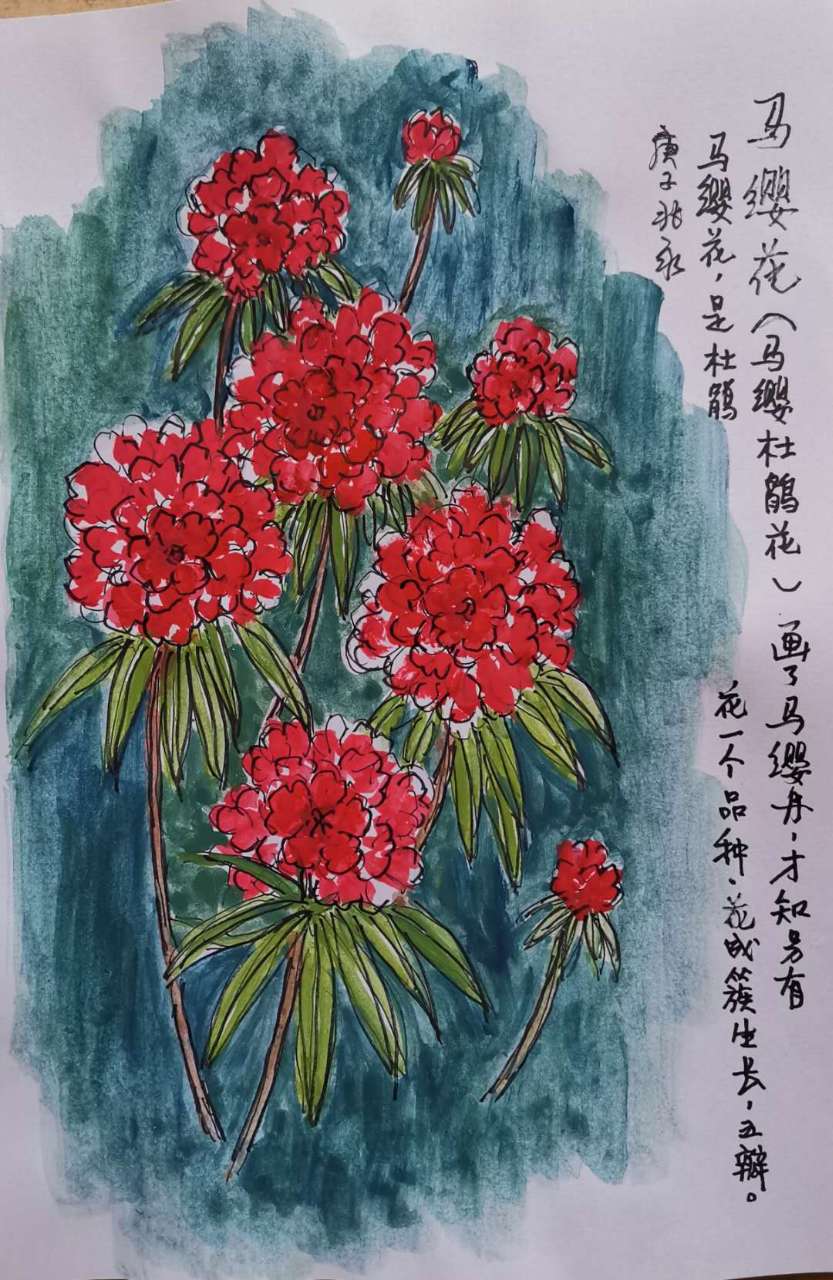 马缨花（马缨杜鹃花）画了马缨丹，才知另有
马缨花，是杜鹃花一个品种，花成簇生长，五瓣。
庚子兆永